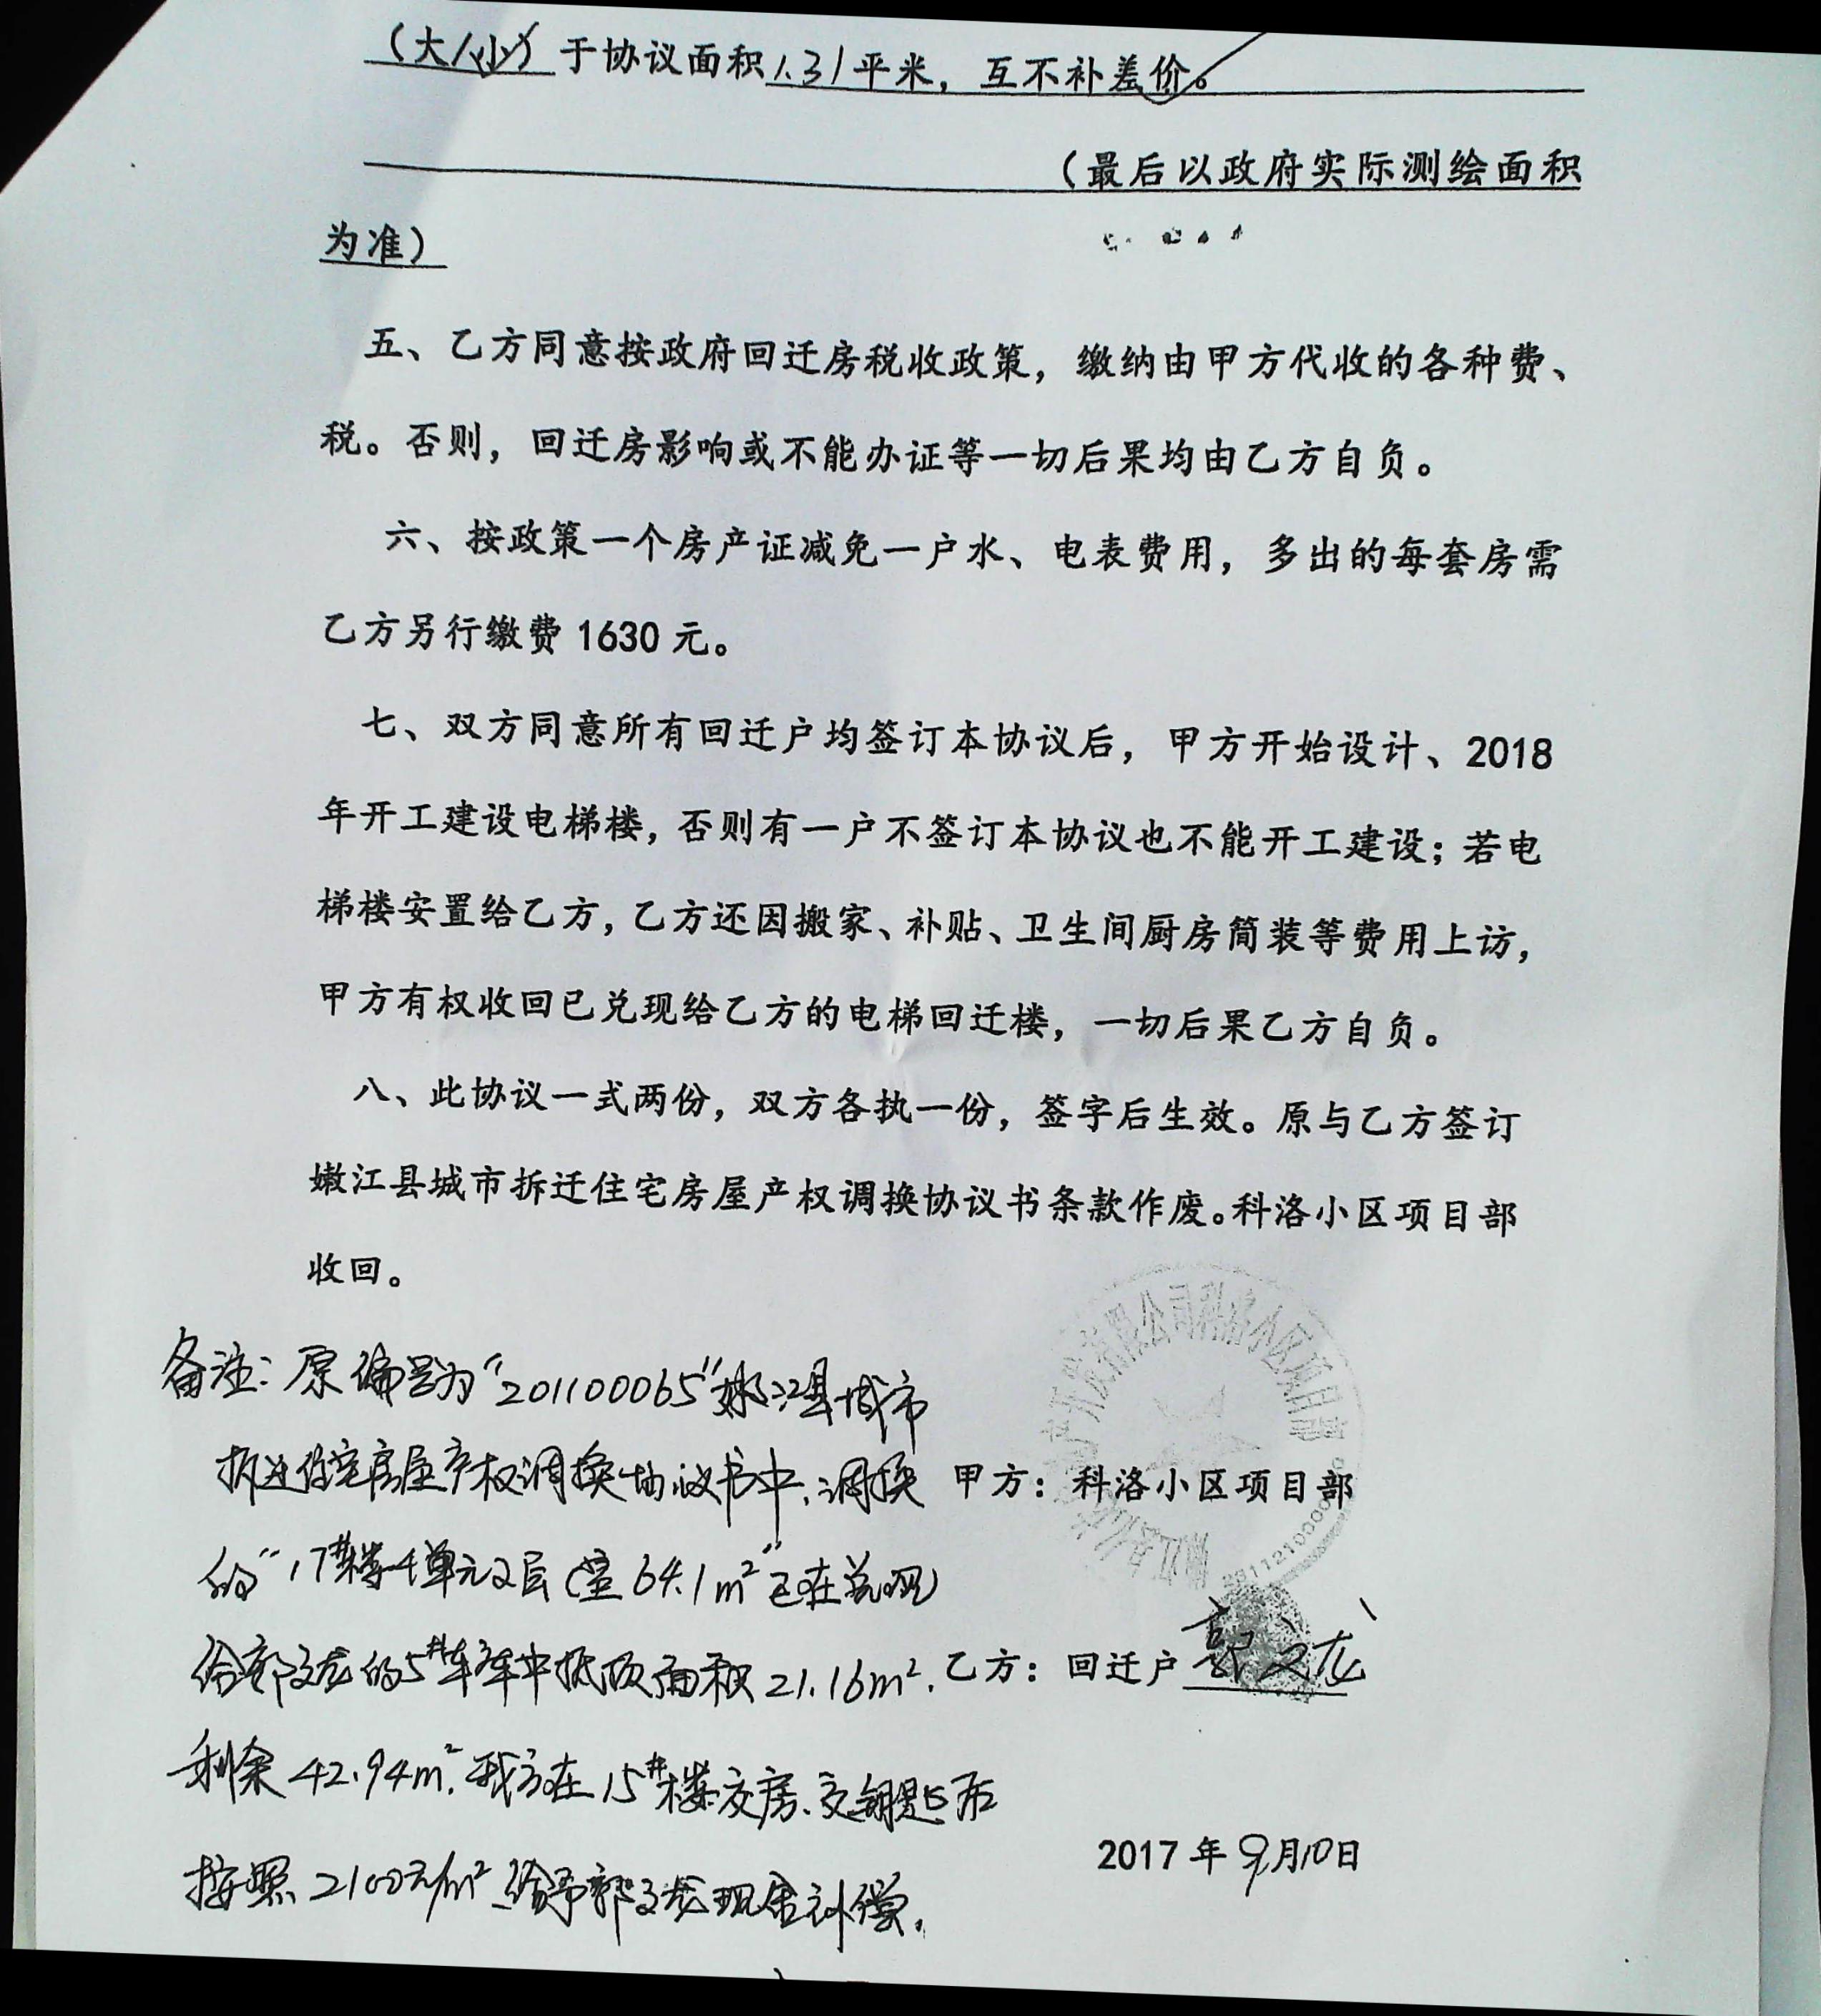 （大/小）于协议面积1.31平米，互不补差价。
（最后以政府实际测绘面积
为准）
五、乙方同意按政府回迁房税收政策，缴纳由甲方代收的各种费、
税。否则，回迁房影响或不能办证等一切后果均由乙方自负。
六、按政策一个房产证减免一户水、电表费用，多出的每套房需
乙方另行缴费1630元。
七、双方同意所有回迁户均签订本协议后，甲方开始设计、2018
年开工建设电梯楼，否则有一户不签订本协议也不能开工建设；若电
梯楼安置给乙方，乙方还因搬家、补贴、卫生间厨房简装等费用上访，
甲方有权收回已兑现给乙方的电梯回迁楼，一切后果乙方自负。
八、此协议一式两份，双方各执一份，签字后生效。原与乙方签订
嫩江县城市拆迁住宅房屋产权调换协议书条款作废。科洛小区项目部
收回。
产开发有限公司科洛小区项目部
备注：原编号为“201100065”嫩江县城市
拆迁住宅房屋产权调换协议书中，调换
甲方：科洛小区项目部
的“17#楼4单元2层（室64.1m²”已在兑现
给郭文龙的5#车库中抵顶面积21.16m².
乙方：回迁户郭文龙
剩余42.94m².我方在15#楼交房、交钥匙后
按照2100元/m²给予郭文龙现金补偿。
2017年9月10日